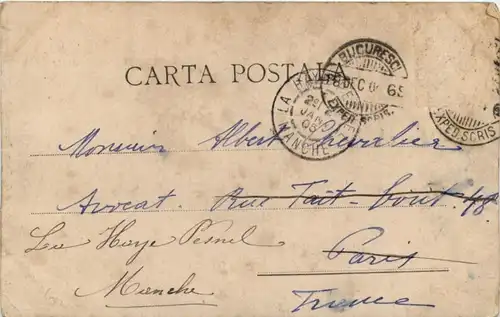 BUCURESCI
CARTA POSTALA
18 DEC 6
EXPED. SCRIS.
LA HAYE
JANV
06
MANCHE
EXPED. SCRIS.
Monsieur Albert Chevalier
Avocat. Rue Tait-bout 48
La Haye Pesnel
Paris
Manche
France